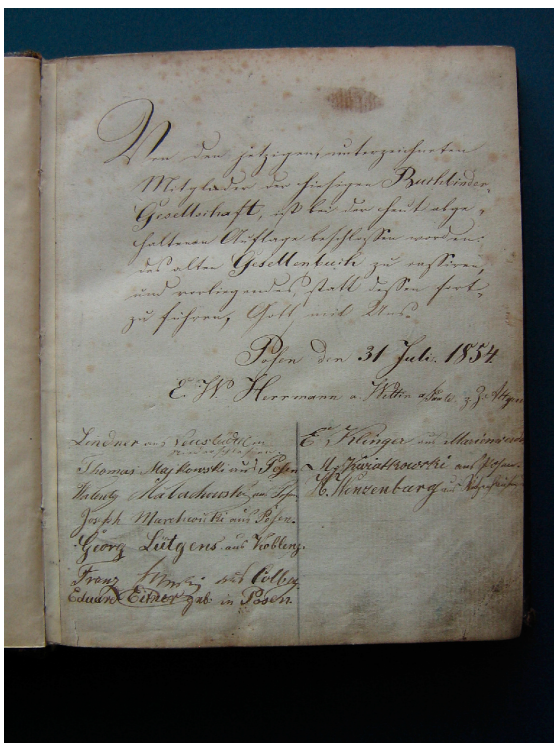 Von den jetzigen, unterzeichneten
Mitglieder der hiesigen Buchbinder-
Gesellschaft, ist bei der heut abge-
haltenen Auflage beschlossen worden:
das alte Gesellenbuch zu cassiren,
und vorliegendes, statt dessen fort-
zu führen, Gott mit Uns.
Posen den 31 Juli. 1854
E. W Herrmann a. Wettin a Saale. z. Z.
Lindner aus
Thomas Majkowski aus Posen
Walenty aus Posen
Joseph aus Posen.
Georg Lütgens aus Koblenz.
Franz aus Colberg
Eduard Eitner geb in Posen
E. Klinger aus Marienwerder
M. Kwiatkowski aus Posen.
K. Winzenburg aus